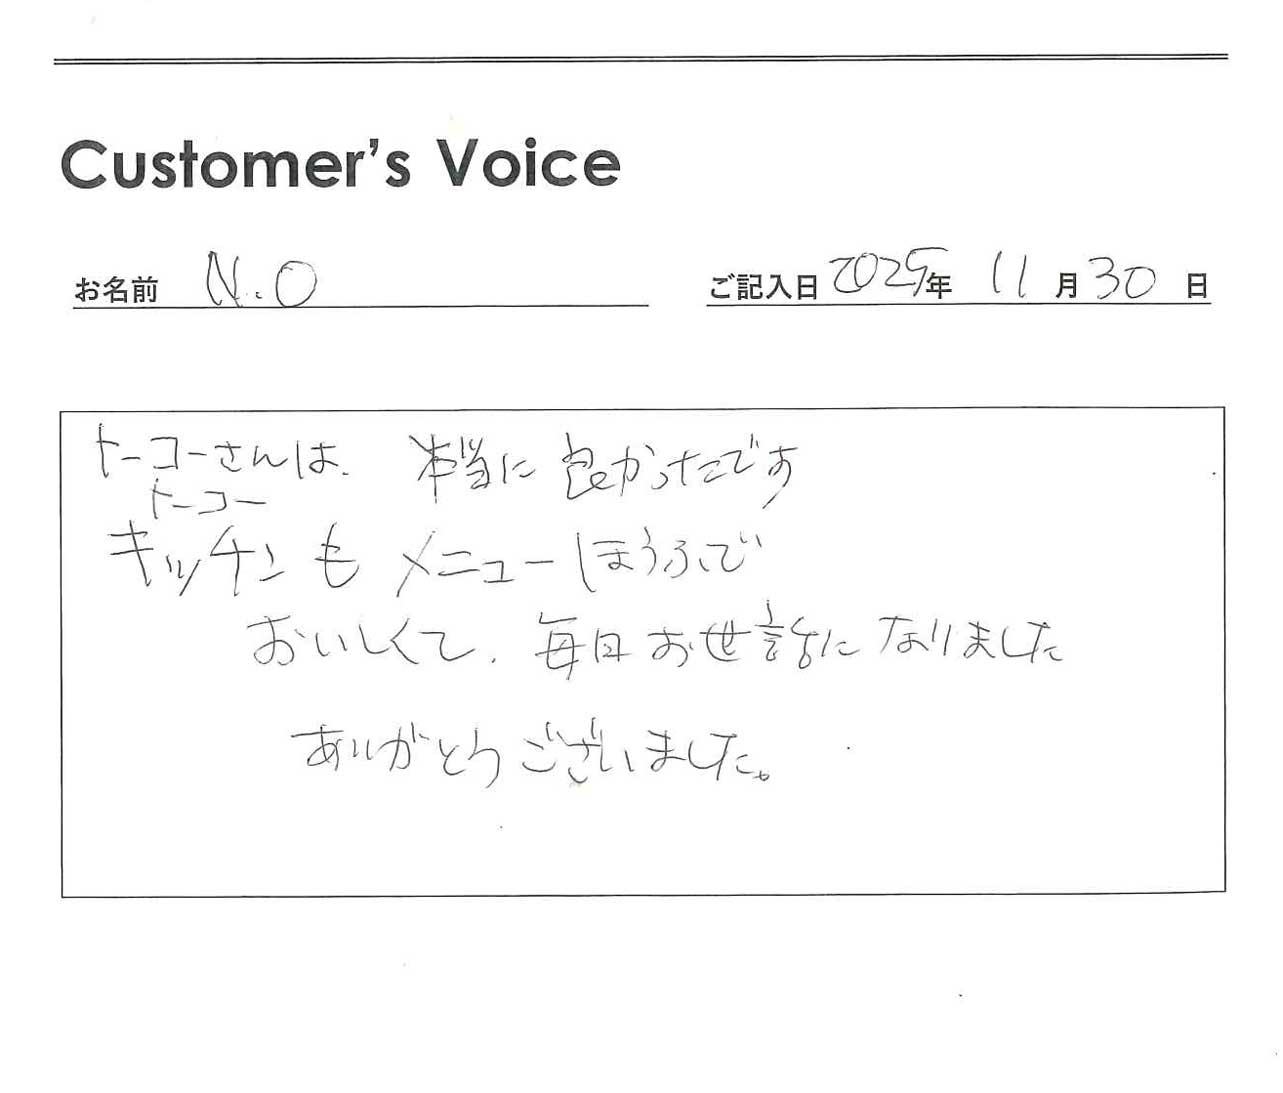 Customer's Voice
お名前 N.O
ご記入日 2025年 11月30日
トーコーさんは、本当に良かったです
トーコー
キッチンも メニューほうふで
おいしくて、毎日お世話になりました
ありがとうございました。